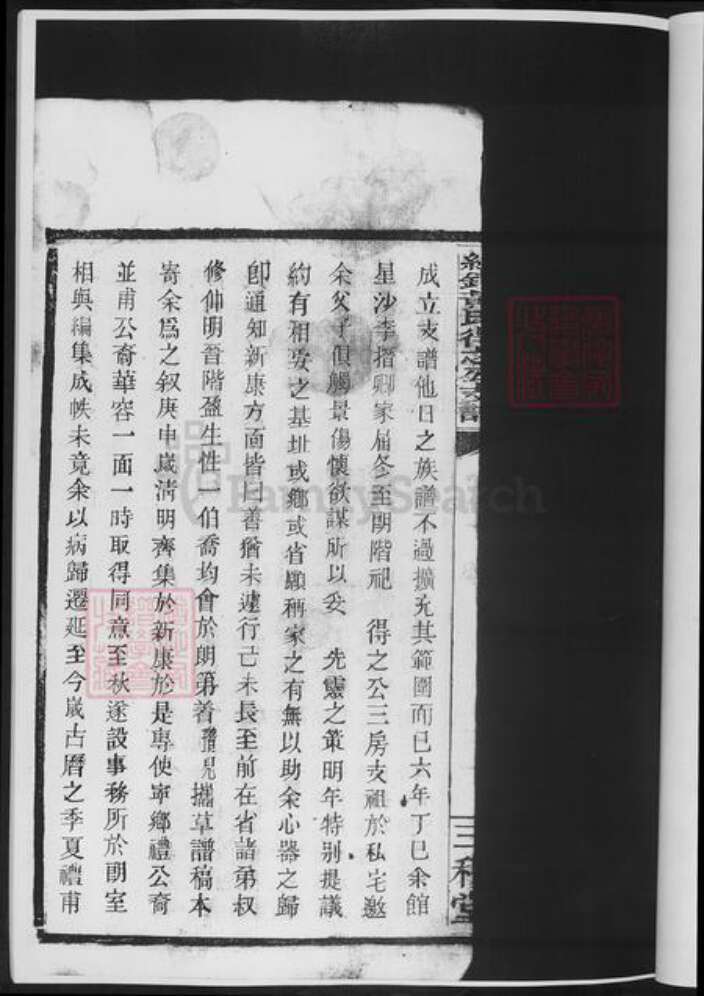 成立支譜他日之族譜不過擴充其範圍而已六年丁巳余館
星沙李搢卿家屆冬至朗階祀 得之公三房支祖於私宅邀
余父子俱觸景傷懷欲謀所以妥 先靈之策明年特別提議
約有相安之基址或鄉或省顯稱家之有無以助余心器之歸
卽通知新康方面皆曰善猶未遽行己未長至前在省諸弟叔
修仲明晉階盈生性一伯喬均會於朗第着 攜草譜稿本
寄余爲之叙庚申歲淸明齊集於新康於是專使寧鄉禮公裔
並甫公裔華容一面一時取得同意至秋遂設事務所於朗室
相與編集成帙未竟余以病歸遷延至今歲古曆之季夏禮甫
得之公支譜
三 堂
FamilySearch